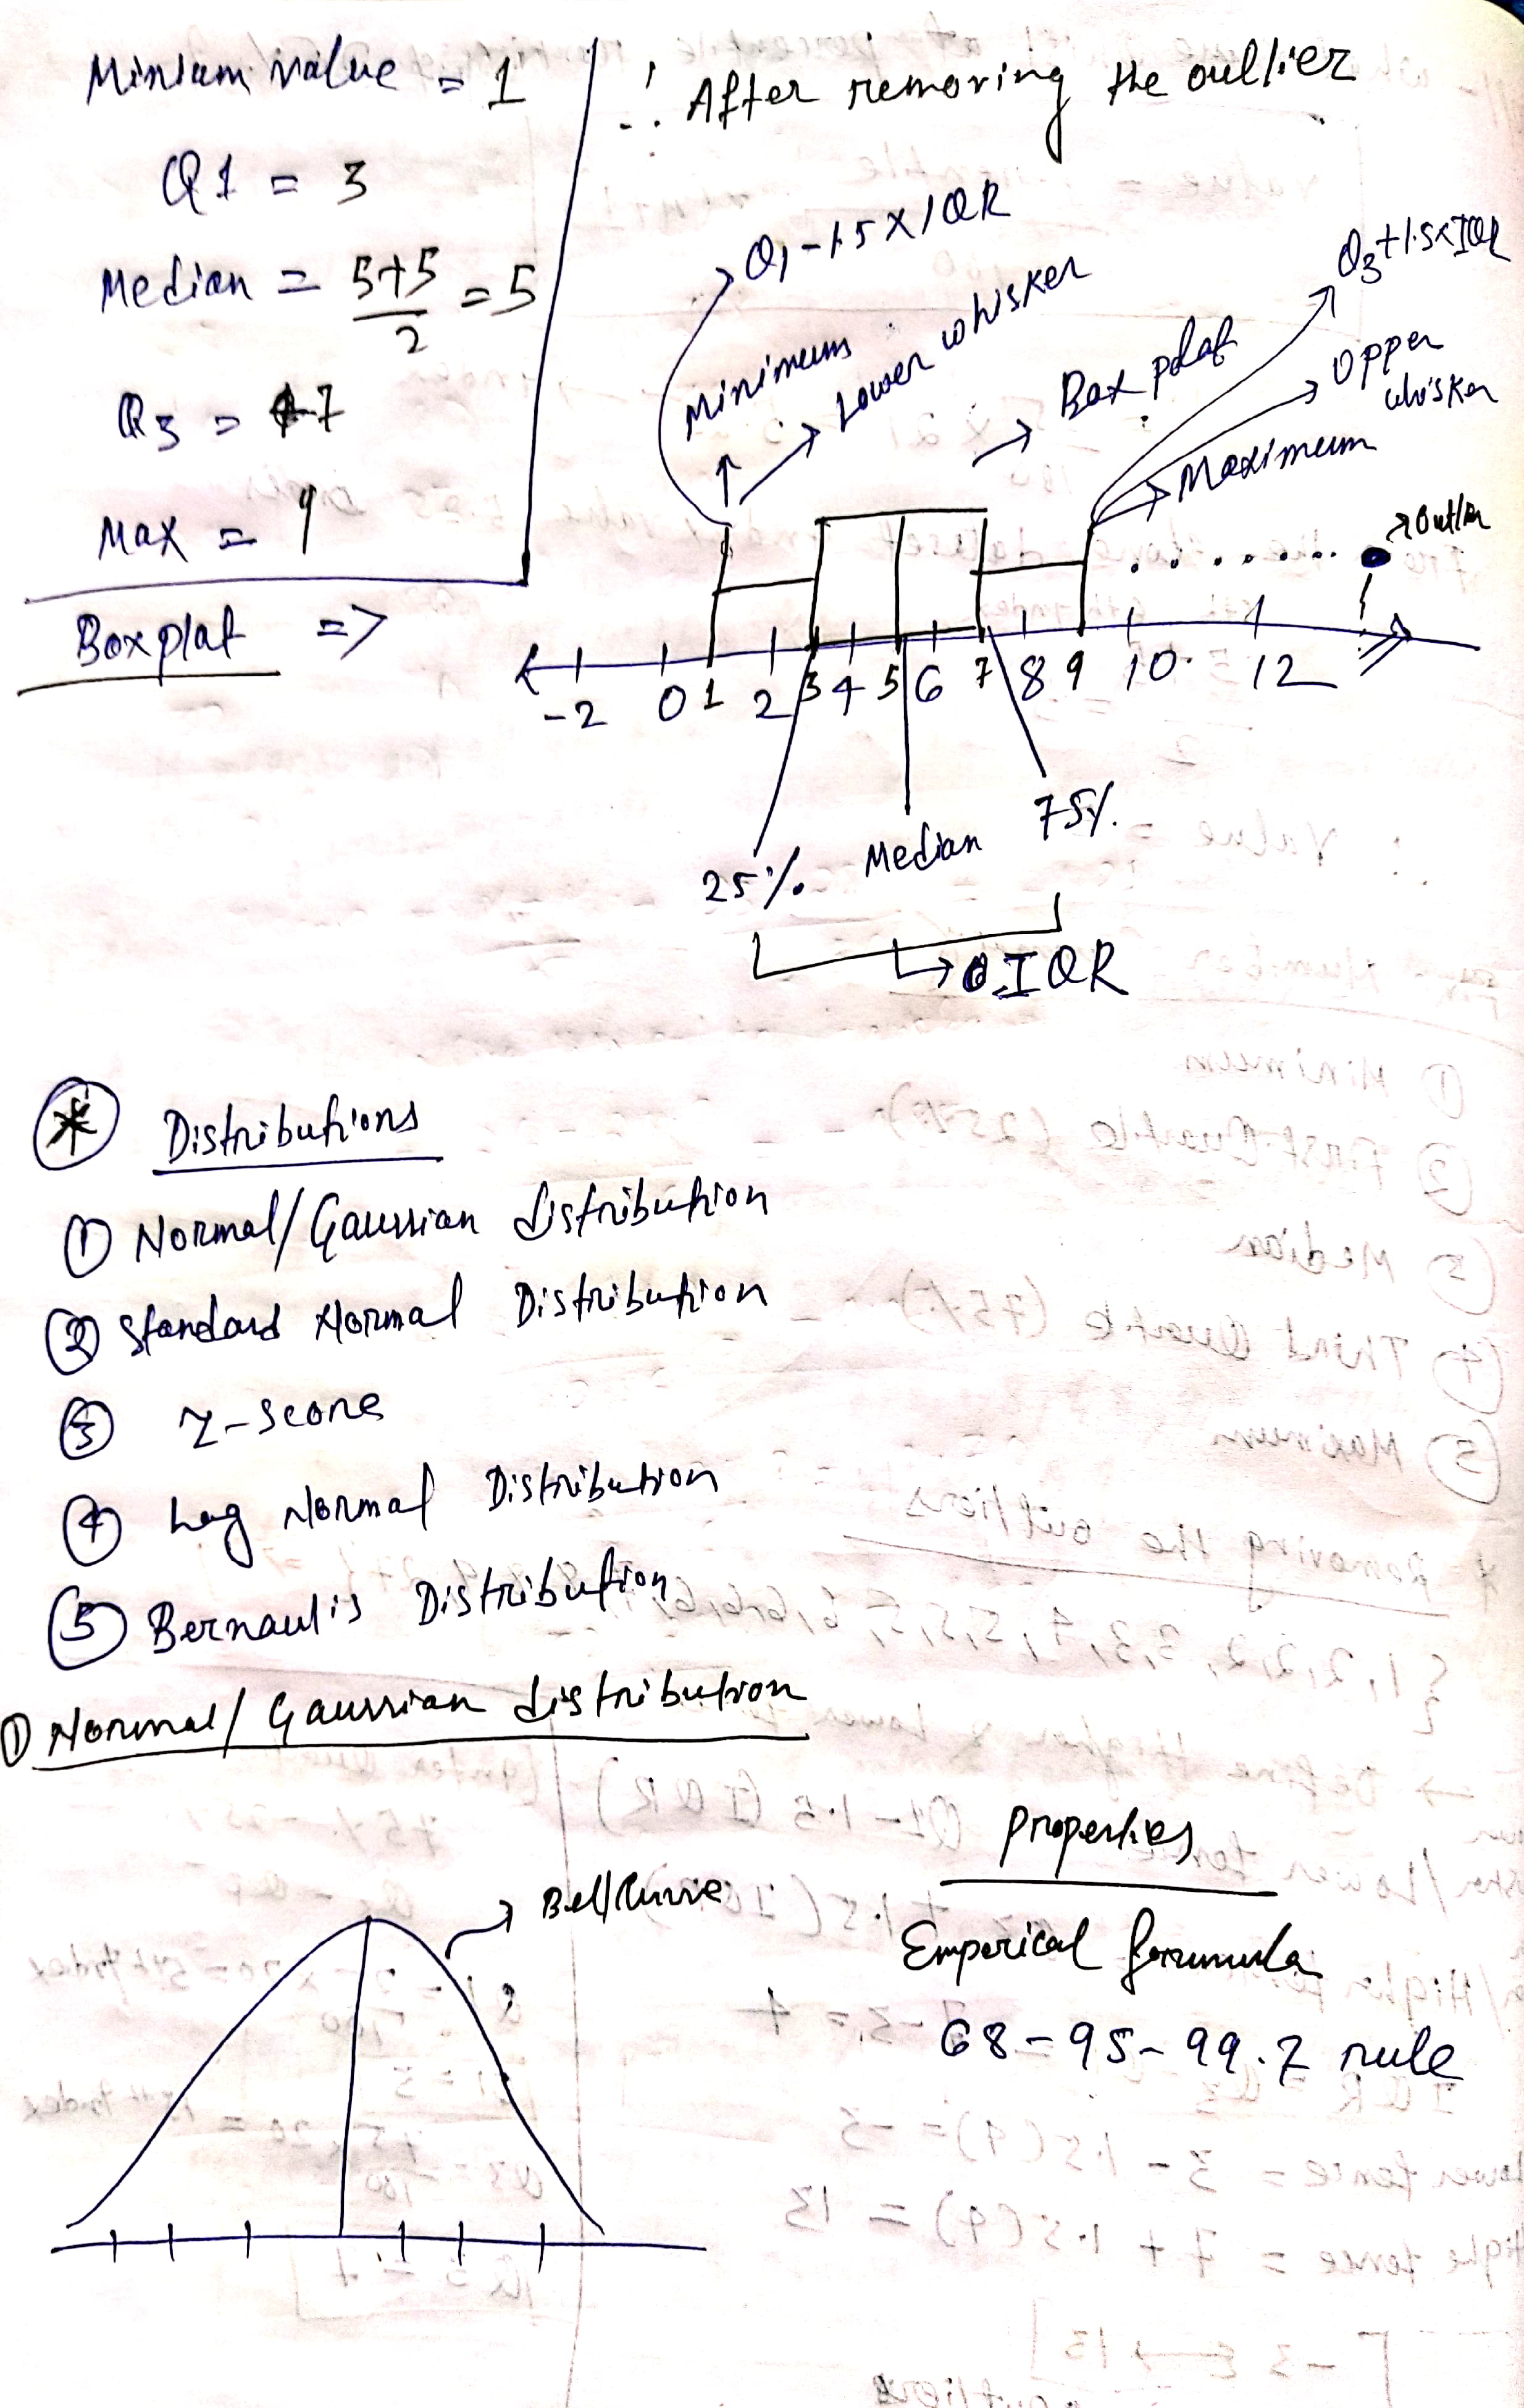 Minium value = 1
Q1 = 3
Median = 5+5/2 = 5
Q3 = 7
Max = 9
∴ After removing the outlier
Q1-1.5X1QR
Minimum
Lower whisker
Box plot
Q3+1.5xIQR
Opper whisker
Maximum
outlier
Boxplat =>
-2 0 1 2 3 4 5 6 7 8 9 10 12
25% Median 75%
IQR
* Distributions
① Normal/Gaussian distribution
② Standard Normal Distribution
③ Z-score
④ Log Normal Distribution
⑤ Bernaulis Distribution
① Normal/Gaussian distribution
Bell Curve
Properties
Emperical formula
68-95-99.7 rule